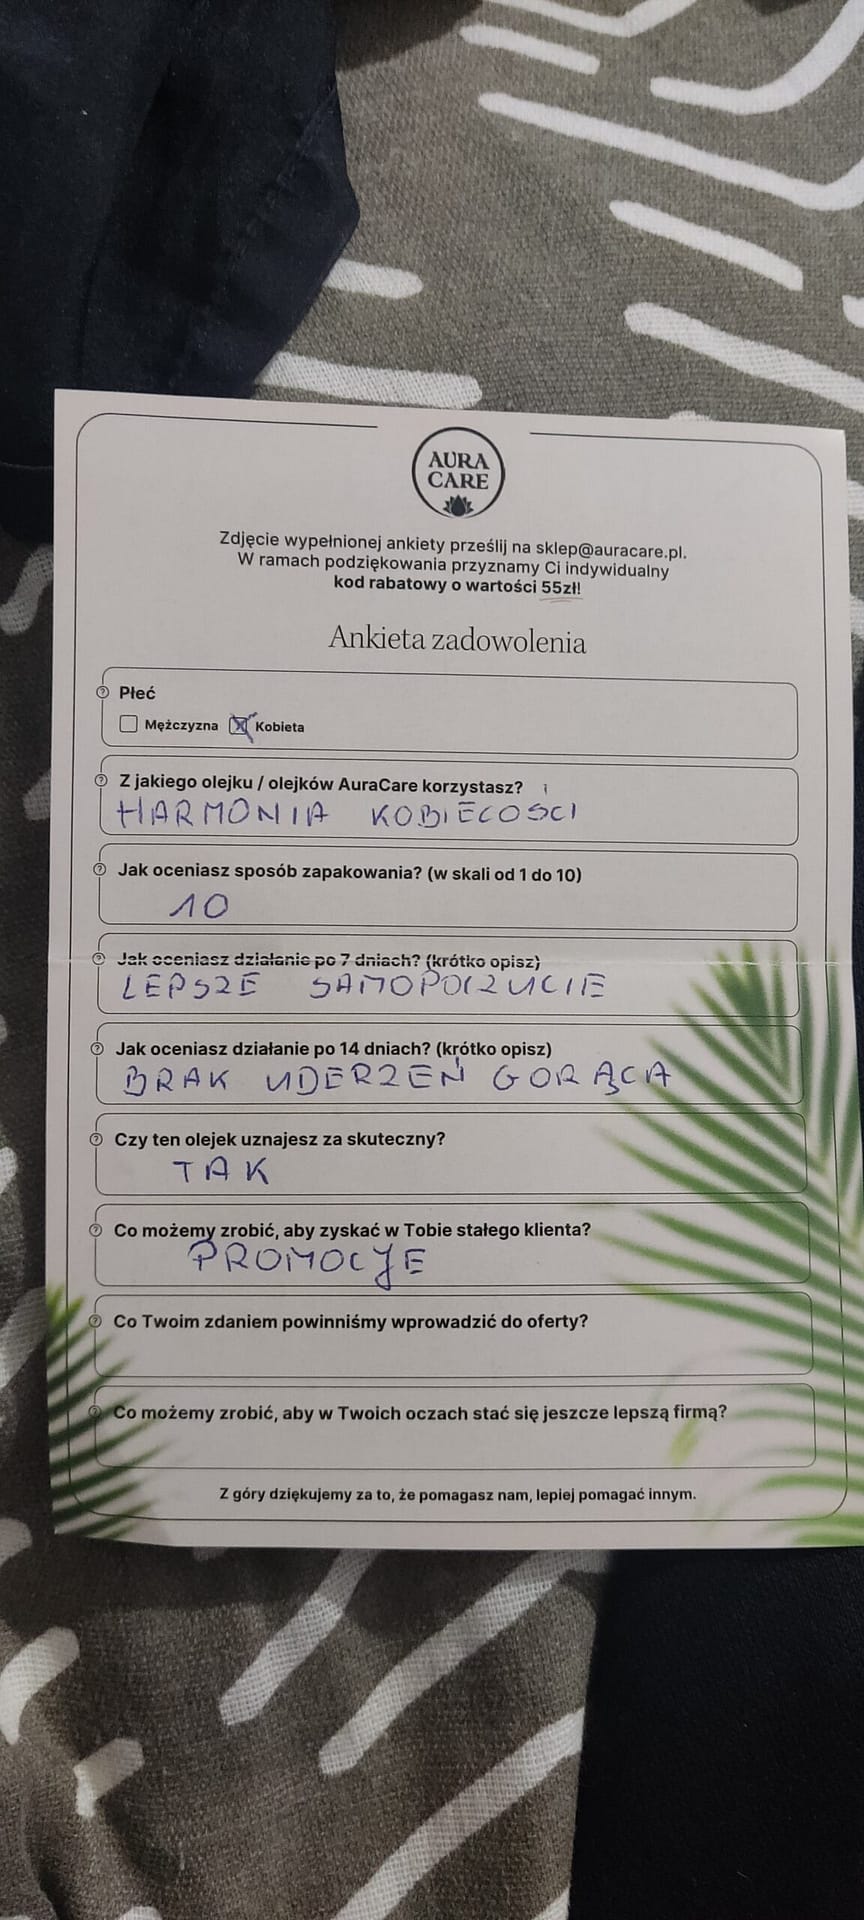 AURA
CARE
Zdjęcie wypełnionej ankiety prześlij na sklep@auracare.pl.
W ramach podziękowania przyznamy Ci indywidualny
kod rabatowy o wartości 55zł!
Ankieta zadowolenia
Płeć
Mężczyzna Kobieta
Z jakiego olejku / olejków AuraCare korzystasz?
HARMONIA KOBIECOSCI
Jak oceniasz sposób zapakowania? (w skali od 1 do 10)
10
Jak oceniasz działanie po 7 dniach? (krótko opisz)
LEPSZE SAMOPOCZUCIE
Jak oceniasz działanie po 14 dniach? (krótko opisz)
BRAK UDERZEŃ GORĄCA
Czy ten olejek uznajesz za skuteczny?
TAK
Co możemy zrobić, aby zyskać w Tobie stałego klienta?
PROMOCJE
Co Twoim zdaniem powinniśmy wprowadzić do oferty?
Co możemy zrobić, aby w Twoich oczach stać się jeszcze lepszą firmą?
Z góry dziękujemy za to, że pomagasz nam, lepiej pomagać innym.